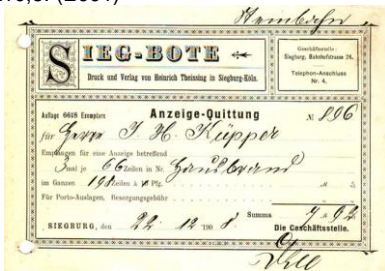 Steinbahn
SIEG-BOTE
Druck und Verlag von Heinrich Theissing in Siegburg-Köln.
Geschäftsstelle:
Siegburg, Bahnhofstrasse 26.
Telephon-Anschluss
Nr. 4.
Auflage 6668 Exemplare
Anzeige-Quittung
№ 896
für Herrn J. H. Küpper
Empfangen für eine Anzeige betreffend
3 mal je 66 Zeilen in Nr. Hausbrand
im Ganzen 198 Zeilen à 4 Pfg.
Für Porto-Auslagen, Besorgungsgebühr
Summa 7 92
SIEGBURG, den 22. 12 190 8
Die Geschäftsstelle.